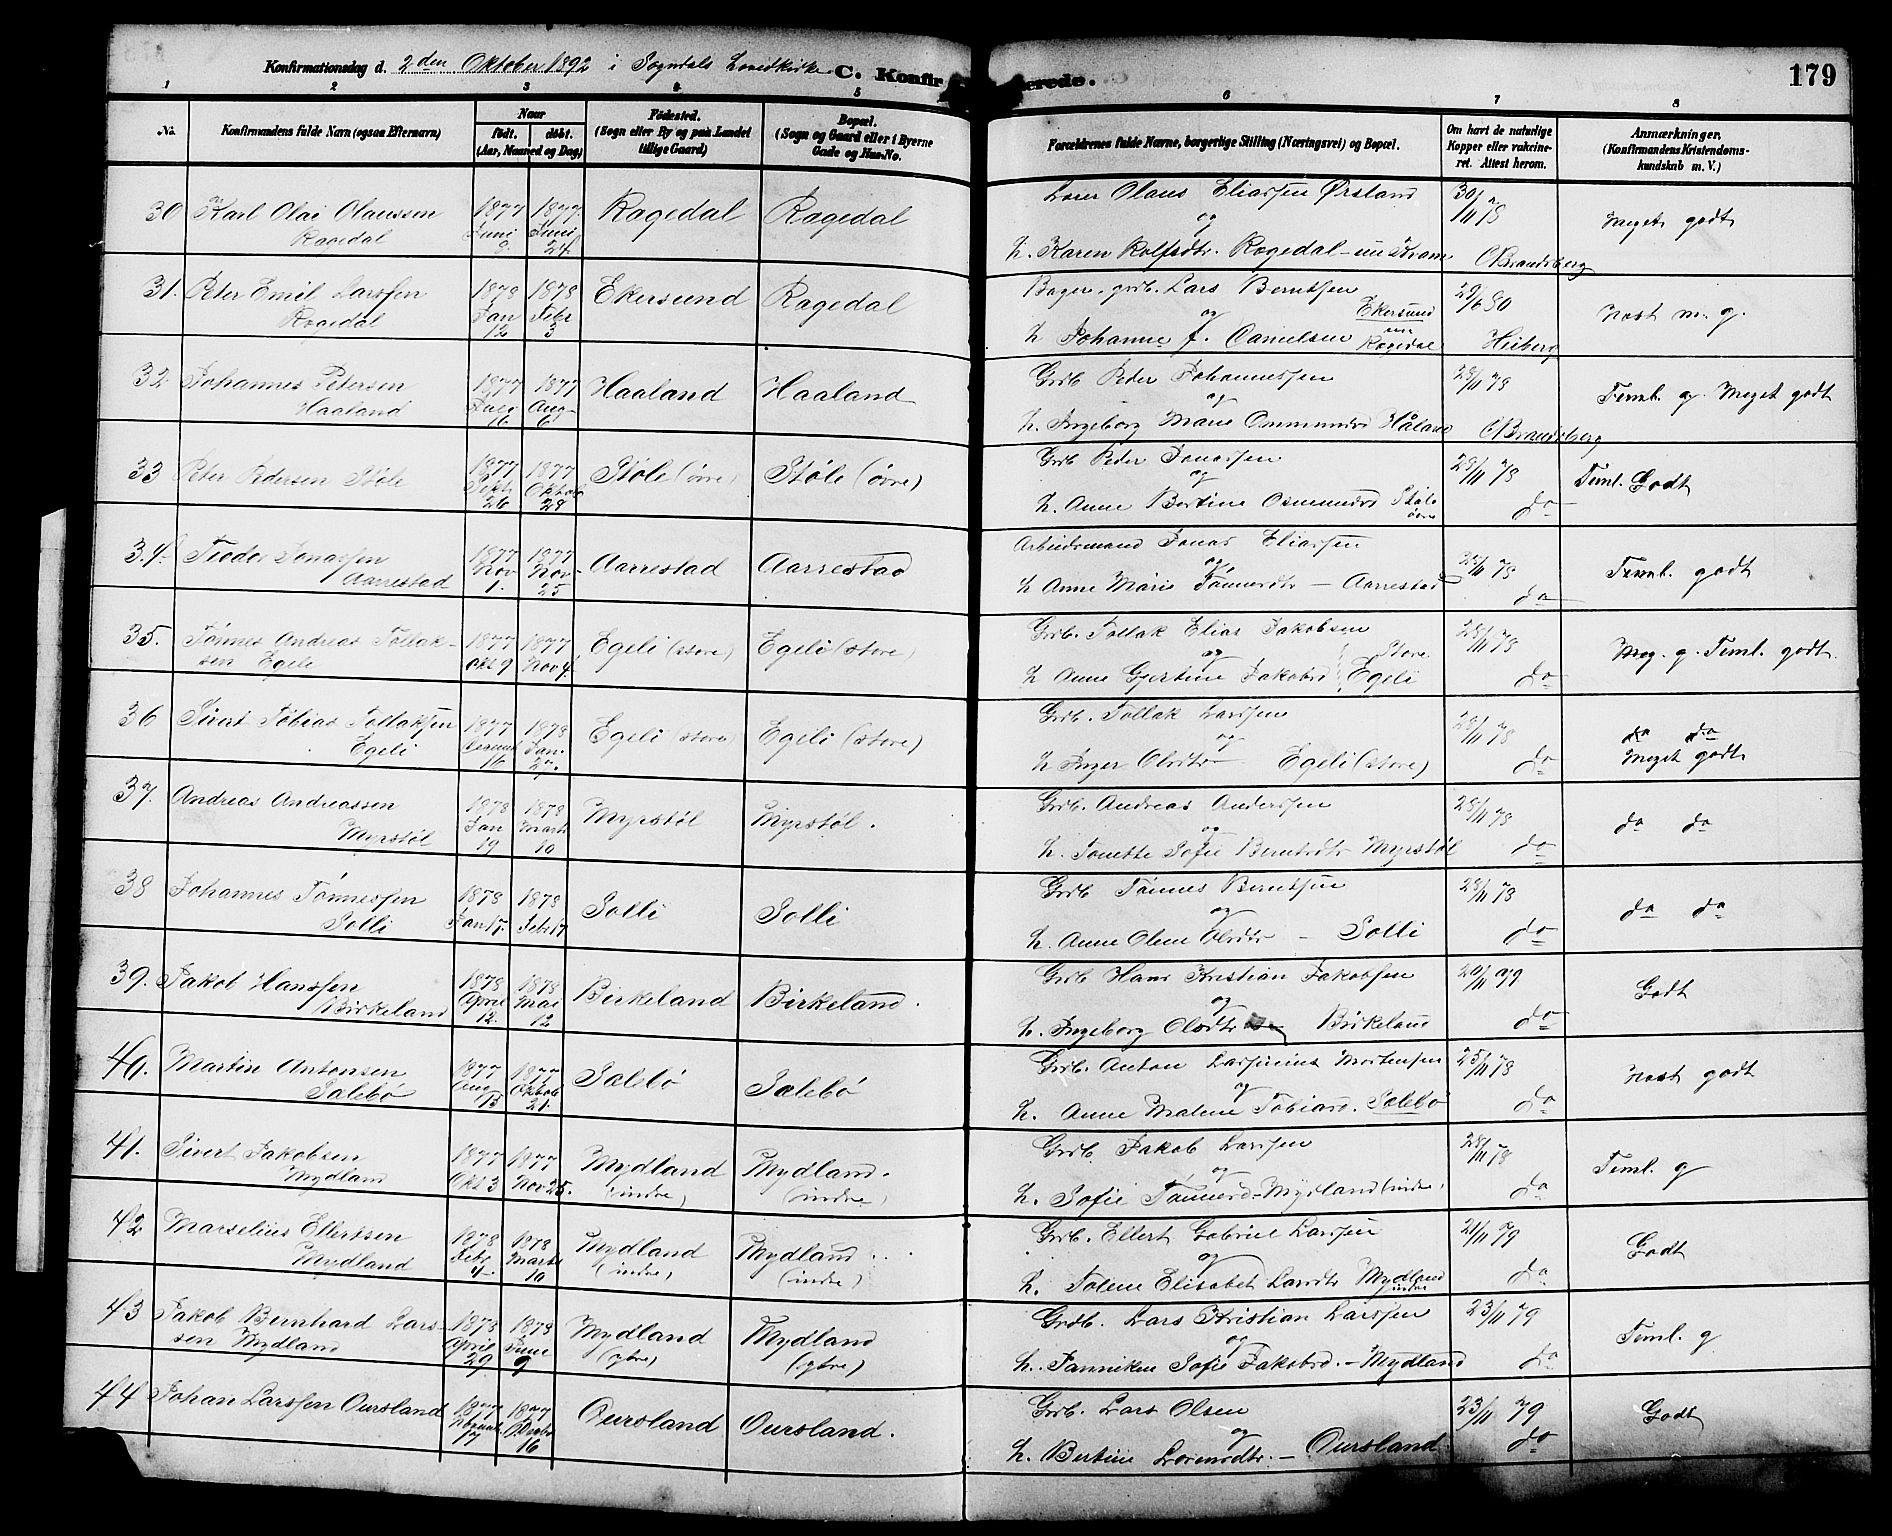 Konfirmationsdag d. 2den Oktober 1892 i Sogndals Hovedkirke C. Konfir erede. 179
1 2 3 4 5 6 7 8
No. Konfirmandens fulde Navn (ogsaa Efternavn) Naar født. døbt. (Aar, Maaned og Dag) Fødested. (Sogn eller By og paa Landet tillige Gaard) Bopæl. (Sogn og Gaard eller i Byerne Gade og Hus-No. Forældrenes fulde Navne, borgerlige Stilling (Næringsvei) og Bopæl. Om havt de naturlige Kopper eller vakcineret. Attest herom. Anmærkninger. (Konfirmandens Kristendomskundskab m. V.)
30 Karl Olai Olaussen 1877 1877 Rægedal Rægedal Olaus Eliassen Ørsland 30/11 78 Meget godt
Rægedal Juni 9 Juni 24 og
h. Karen Rolfsdtr. Rægedal C Brandsberg
31. Peter Emil Larssen 1878 1878 Ekersund Rægedal Bager, Lars Berntsen Ekersund 29/6 80 Næst m. g.
Rægedal Jan 12 Febr 3 og
h Johanne f. Danielsen Rægedal Heiberg
32 Johannes Petersen 1877 1877 Haaland Haaland Grdb Peder Johannessen 28/11 78 Teml. g. Meget godt
Haaland 16 Aug 6 og
h. Ingeborg Marie Ommundsd Håland C Brandsberg
33 Peter Pedersen Støle 1877 1877 Støle (øvre) Støle (øvre) Grdb Peder Jonassen 28/11 78 Teml. Godt
Sept 26 Oktob 28 og
h. Anne Bertine Osmundsd Støle øvre do
34. Teodor Jonassen 1877 1877 Aarrestad Aarrestad Arbeidsmand Jonas Eliassen 78 Teml. godt
Aarrestad Nov 1. Nov 25 og
h Anne Marie Tønnesdtr — Aarrestad do
35. Tønnes Andreas Tollak- 1877 1877 Egeli (store) Egeli (store) Grdb. Tollak Elias Jakobsen 28/11 78 Meg. g. Teml. godt
sen Egeli Okt 9 Nov 4. og Store
h Anne Gjertine Jakobsd Egeli do
36 Sivert Tobias Tollaksen 1877 1878 Egeli (store) Egeli (store) Grdb. Tollak Larssen 28/11 78 do do
Egeli 16 Jan. 27. og Meget godt
h Inger Olsdtr Egeli (store) do
37. Andreas Andreassen 1878 1878 Myrstøl Myrstøl. Grdb. Andreas Anderssen 28/11 78 do do
Myrstøl Jan 19 Marts 10 og
h. Tonette Sofie Berntsdtr Myrstøl do
38 Johannes Tønnessen 1878 1878 Solli Solli Grdb Tønnes Berntsen 28/11 78 do do
Solli Jan 17. Febr 17 og
h. Anne Olene Olsdtr — Solli do
39. Jakob Hanssen 1878 1878 Birkeland Birkeland. Grdb Hans Kristian Jakobsen Godt
Birkeland April 12. Mai 12 og
h. Ingeborg Olsdtr Birkeland do
40. Martin Antonsen 1877 1877 Salebø Salebø Grdb. Anton Mortensen 25/11 78 Næst godt
Salebø Aug 13 Oktob 21. og
h. Anne Malene Tobiasd. Salebø do
41. Sivert Jakobsen 1877 1877 Mydland Mydland. Grdb. Jakob Larssen 28/11 78 Teml. g
Mydland Okt 3 Nov 25. (indre) (indre) og
h. Sofie Tønnesd — Mydland (indre) do
42 Marselius Ellertsen 1878 1878 Mydland Mydland Grdb. Ellert Gabriel Larssen 21/11 79 Godt
Mydland Febr 4 Marts 10 (indre) (indre) og
h. Tolene Elisabet Larsdtr Mydland indre do
43 Jakob Bernhard Lars- 1878 1878 Mydland Mydland Grdb. Lars Kristian Larssen 23/11 79 Teml. g
sen Mydland April 29. June 9 (ytre) (ytre) og
h. Janniken Sofie Jakobsd. — Mydland do
44 Johan Larssen Oursland 1877 1877 Oursland Oursland. Grdb. Lars Olsen 23/11 79 Godt
17 16 og
h. Bertine Lorensdtr. — Oursland do